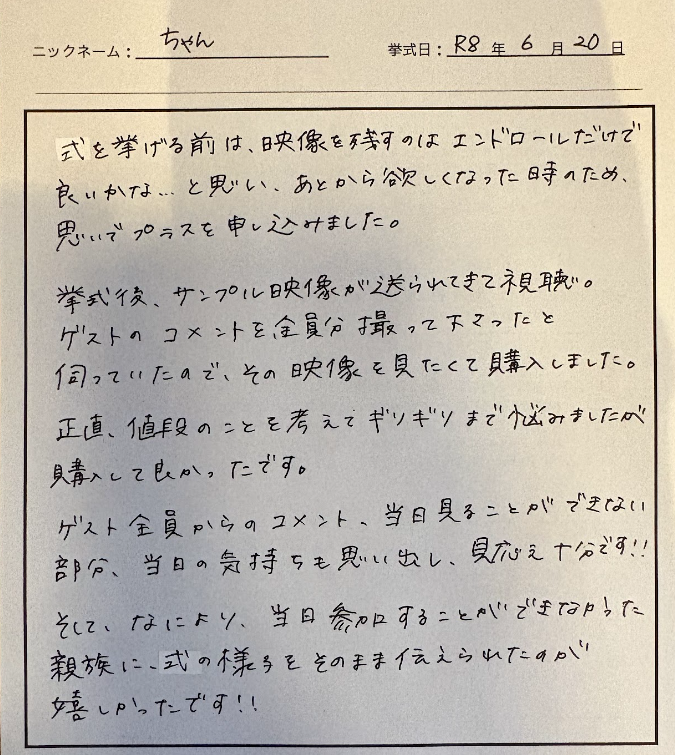 ニックネーム：ちゃん 挙式日：R8年6月20日
式を挙げる前は、映像を残すのはエンドロールだけで
良いかな…と思い、あとから欲しくなった時のため、
思いでプラスを申し込みました。
挙式後、サンプル映像が送られてきて視聴。
ゲストのコメントを全員分撮って下さったと
伺っていたので、その映像を見たくて購入しました。
正直、値段のことを考えてギリギリまで悩みましたが
購入して良かったです。
ゲスト全員からのコメント、当日見ることができない
部分、当日の気持ちも思い出し、見応え十分です!!
そして、なにより、当日参加することができなかった
親族に、式の様子をそのまま伝えられたのが
嬉しかったです!!